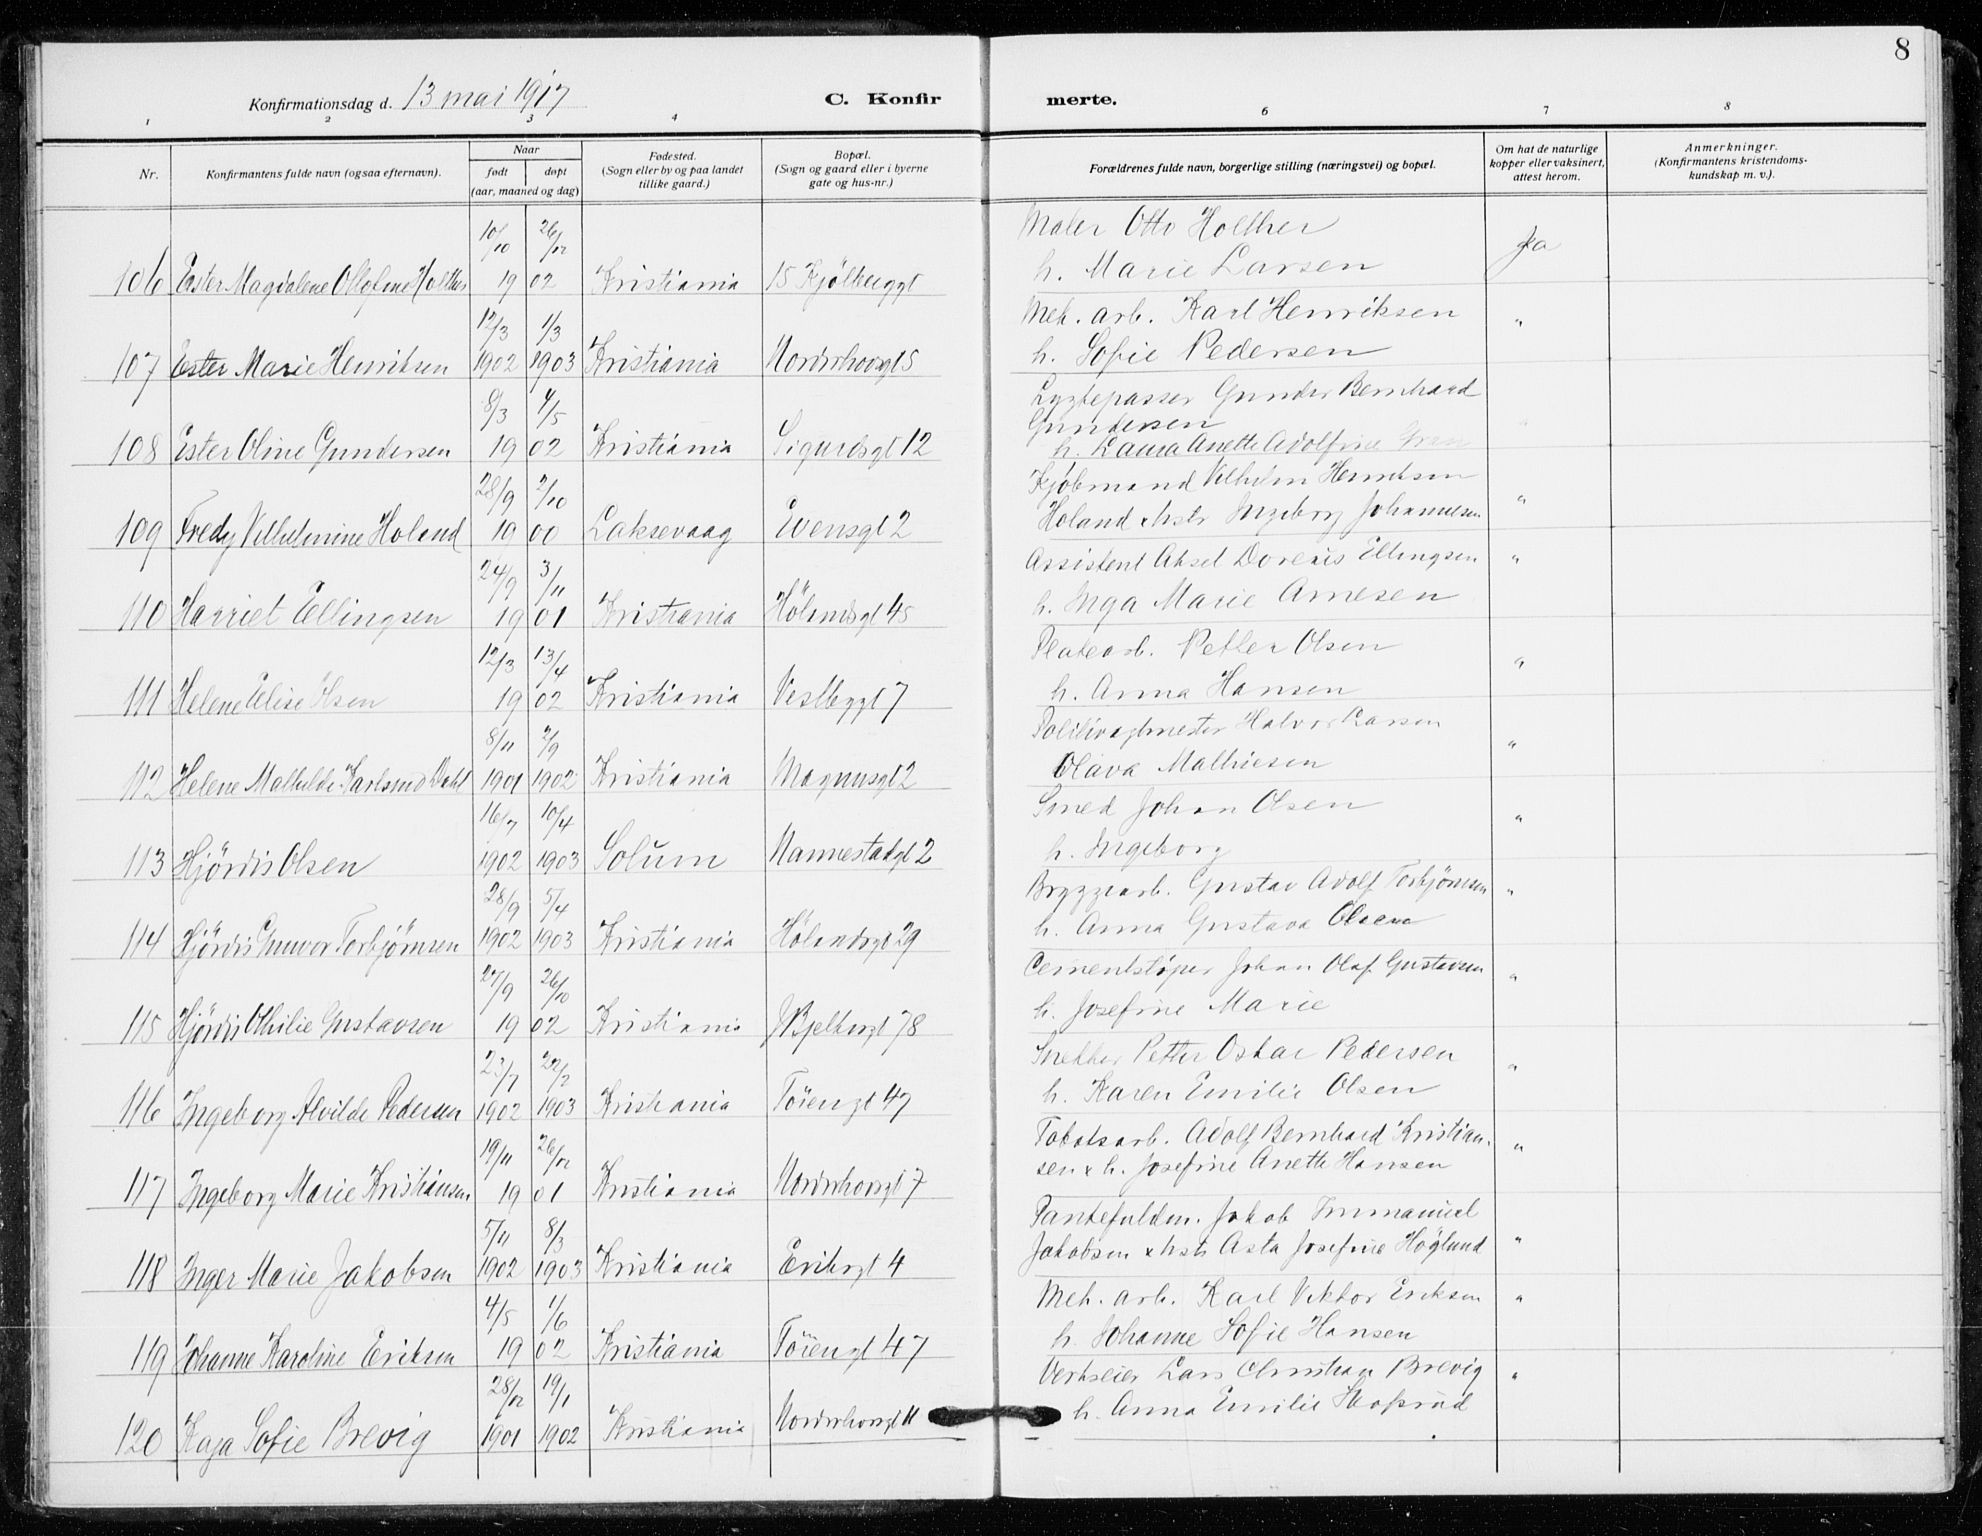 8
Konfirmationsdag d. 13 mai 1917
C. Konfir
merte.
1 2 3 4 6 7 8
Nr.
Konfirmantens fulde navn (ogsaa efternavn).
Naar
født døpt
(aar, maaned og dag)
Fødested.
(Sogn eller by og paa landet
tillike gaard.)
Bopæl.
(Sogn og gaard eller i byerne
gate og hus-nr.)
Forældrenes fulde navn, borgerlige stilling (næringsvei) og bopæl.
Om hat de naturlige
kopper eller vaksinert,
attest herom.
Anmerkninger.
(Konfirmantens kristendoms-
kundskap m. v.).
10/10 26/12 Maler Otto Holther Ja
106 Ester Magdalene Holther 19 02 Kristiania 15 Kjølberggt h. Marie Larsen
12/3 1/3 Mek. arb. Karl Henriksen "
107 Ester Marie Henriksen 1902 1903 Kristiania Nordrhovgt 5 h. Sofie Pedersen
8/3 4/5 Lygtepasser Gunder Bernhard
Gundersen
108 Ester Oline Gundersen 19 02 Kristiania Sigurdsgt 12 h. Laura Anette Adolfine Gran
28/9 2/10 Kjøbmand Vilhelm Henriksen "
109 Fredy Vilhelmine Holand 19 00 Laksevaag Evensgt 2 Holand & hstr Ingeborg Johannesen
24/9 3/11 Assistent Aksel Dorenis Ellingsen "
110 Harriet Ellingsen 19 01 Kristiania Hölandsgt 45 h. Inga Marie Arnesen
12/3 13/4 Platearb. Petter Olsen "
111 Helene Elise Olsen 19 02 Kristiania Vestbygt 7 h. Anna Hansen
8/11 2/9 Politivagtmester Halvor Larsen "
112 Helene Mathilde Karlsmo Dahl 1901 1902 Kristiania Magnusgt 2 Olava Mathiesen
16/7 10/4 Smed Johan Olsen "
113 Hjördis Olsen 1902 1903 Solum Nannestadgt 2 h. Ingeborg
28/9 5/4 Bryggearb. Gustav Adolf Torbjörnsen "
114 Hjördis Gunvor Torbjörnsen 1902 1903 Kristiania Hölandsgt 29 h. Anna Gustava Olsen
27/9 26/10 Cementstöper Johan Olaf Gustavsen "
115 Hjördis Othilie Gustavsen 19 02 Kristiania Kjølberggt 78 h. Josefine Marie
23/7 22/2 Snekker Petter Oskar Pedersen "
116 Ingeborg Alvilde Pedersen 1902 1903 Kristiania Töiengt 47 h. Karen Emilie Olsen
19/11 26/12 Tobaksarb. Adolf Bernhard Kristian- "
117 Ingeborg Marie Kristiansen 19 01 Kristiania Nordrhovgt 7 sen & h. Josefine Anette Hansen
5/11 8/3 Pantefuldm. Jakob Immanuel
118 Inger Marie Jakobsen 1902 1903 Kristiania Eriksgt 4 Jakobsen & hstr Asta Josefine Höglund "
4/5 1/6 Mek. arb. Karl Viktor Eriksen "
119 Johanne Karoline Eriksen 19 02 Kristiania Töiengt 47 h. Johanne Sofie Hansen
28/12 19/1 Verkseier Lars Christian Brevig "
120 Kaja Sofie Brevig 1901 1902 Kristiania Nordrhovgt 11 h. Anna Emilie Hofsrud